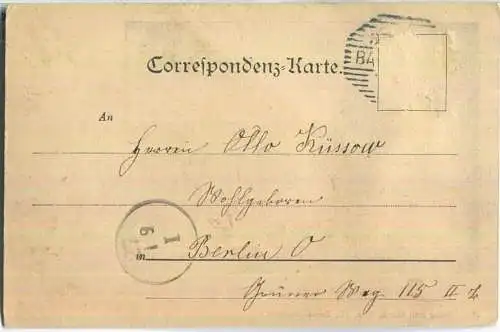 Correspondenz-Karte.
BA
An
Herren Otto Küssow
Wohlgeboren
in Berlin O
Grüner Weg 115 II